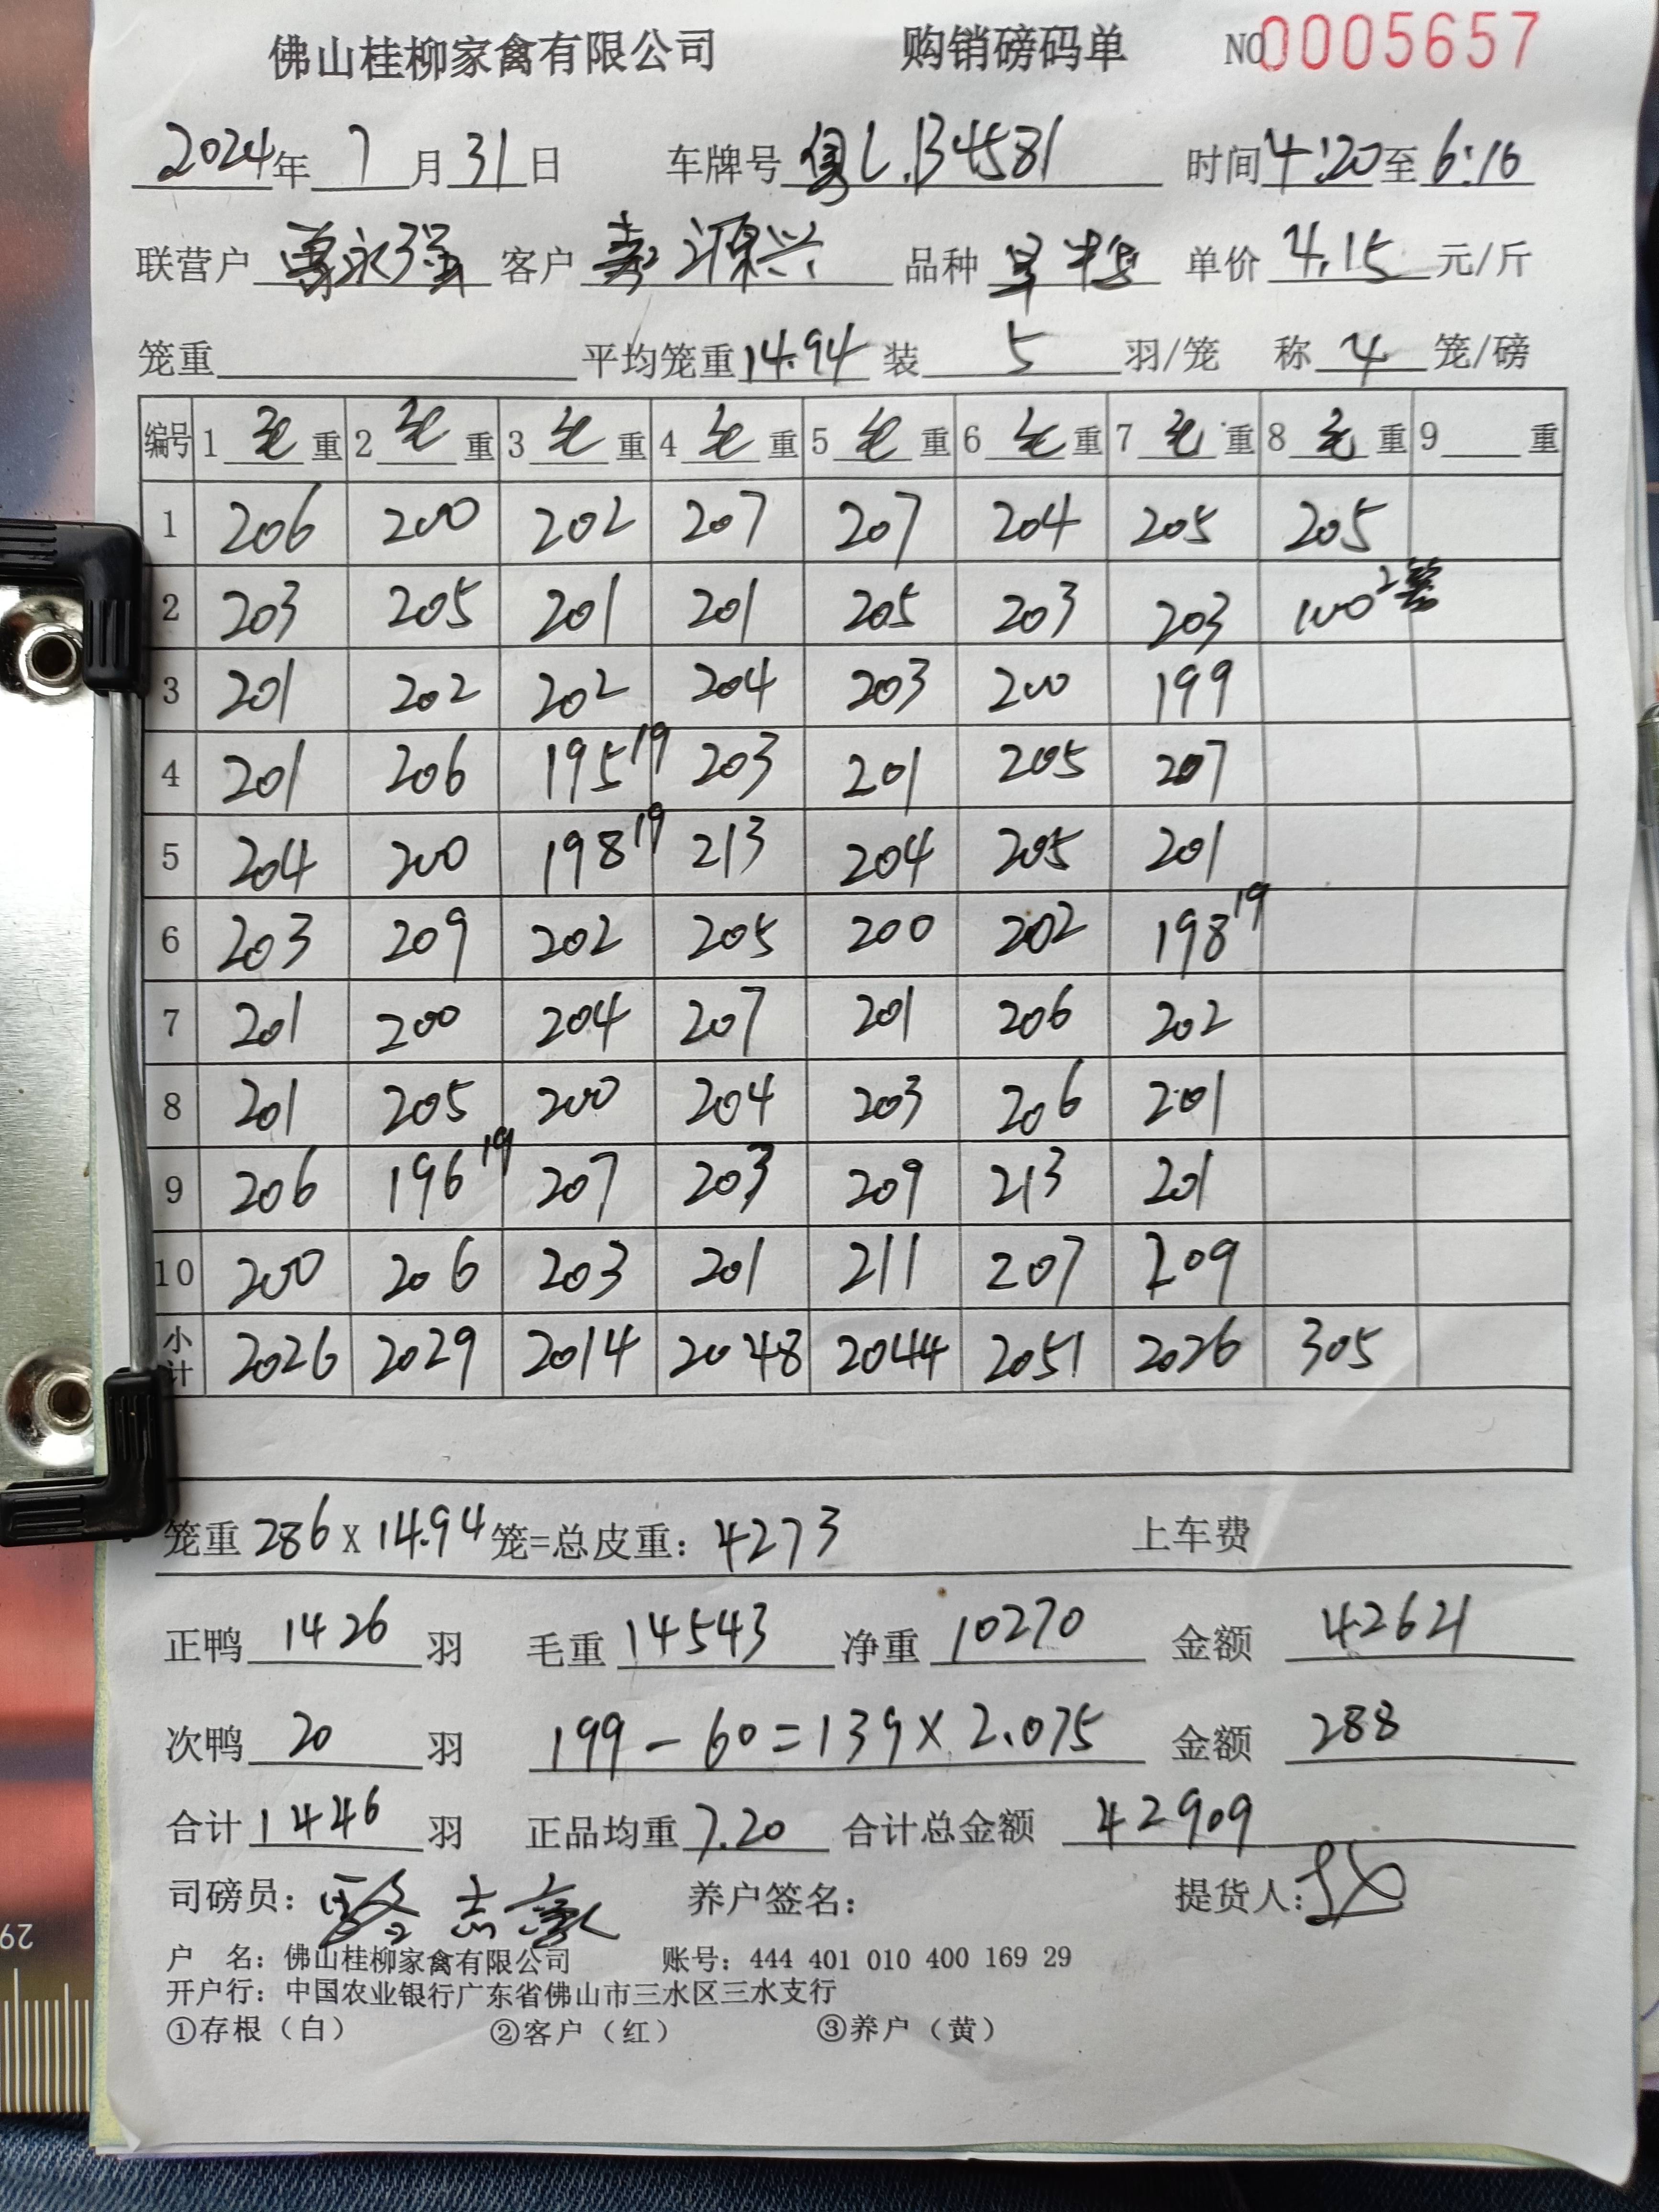 佛山桂柳家禽有限公司 购销磅码单 NO 0005657
2024年 7月 31日 车牌号 粤L.B4581 时间 4:20 至 6:16
联营户 永强 客户 源兴 品种 单价 4.15 元/斤
笼重 平均笼重 14.94 装 5 羽/笼 称 4 笼/磅
编号 1 毛 重 2 毛 重 3 毛 重 4 毛 重 5 毛 重 6 毛 重 7 毛 重 8 毛 重 9 重
1 206 200 202 207 207 204 205 205
2 203 205 201 201 205 203 203 100 2笼
3 201 202 202 204 203 200 199
4 201 206 195 19 203 201 205 207
5 204 200 198 19 213 204 205 201
6 203 209 202 205 200 202 198 19
7 201 200 204 207 201 206 202
8 201 205 200 204 203 206 201
9 206 196 19 207 203 209 213 201
10 200 206 203 201 211 207 209
小计 2026 2029 2014 2048 2044 2051 2026 305
笼重 286 x 14.94 笼=总皮重: 4273 上车费
正鸭 1426 羽 毛重 14543 净重 10270 金额 42621
次鸭 20 羽 199 - 60 = 139 x 2.075 金额 288
合计 1446 羽 正品均重 7.20 合计总金额 42909
司磅员: 志 养户签名: 提货人:
户 名: 佛山桂柳家禽有限公司 账号: 444 401 010 400 169 29
开户行: 中国农业银行广东省佛山市三水区三水支行
①存根（白） ②客户（红） ③养户（黄）
29